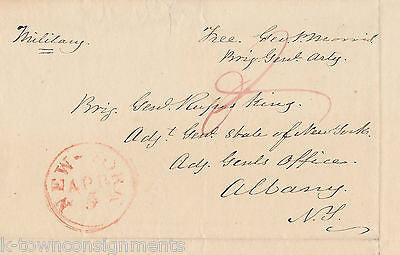 Military.
Free. Geo. P. Morris
Brig Genl. Arty.
Brig. Genl. Rufus King.
Adjt. Genl. State of New York.
Adj. Genls Office.
Albany.
N.Y.
NEW-YORK
APR
5
k-townconsignments